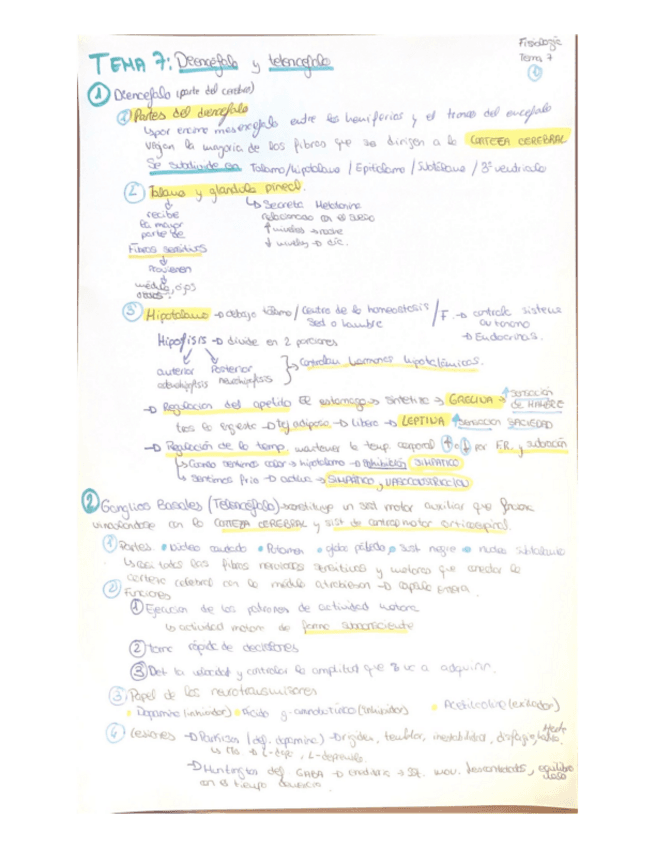 Fisiología
Tema 7
①
TEMA 7: Diencéfalo y telencéfalo
① Diencéfalo (parte del cerebro)
① Partes del diencéfalo
↳ por encima mesencéfalo entre los hemisferios y el tronco del encéfalo
viajan la mayoría de las fibras que se dirigen a la CORTEZA CEREBRAL
Se subdivide en Tálamo/hipotálamo / Epitálamo / Subtálamo / 3º ventrículo
② Tálamo y glándula pineal.
recibe
la mayor
parte de
Fibras sensitivas
Provienen
médula, ojos
↳ Secreta Melatonina
relacionada con el sueño
↑ niveles → noche
↓ niveles → día.
③ Hipotálamo → debajo tálamo / Centro de la homeostasis / F. → controla sistema
Sed o hambre
autónomo
→ Endocrinas.
Hipófisis → divide en 2 porciones
anterior Posterior
adenohipófisis neurohipófisis
↳ Controlan hormonas hipotalámicas.
→ Regulación del apetito estómago → sintetiza → GRELINA → ↑ sensación
de HAMBRE
tras la ingesta → tej. adiposo → libera → LEPTINA ↑ sensación SACIEDAD
→ Regulación de la temp. mantener la temp. corporal ↑ o ↓ por F.R. y sudoración
↳ Cuando sentimos calor → hipotálamo → inhibición SIMPÁTICO
↳ Sentimos frío → activa → SIMPÁTICO, VASOCONSTRICCIÓN
② Ganglios Basales (Telencéfalo) → constituye un sist motor auxiliar que funciona
vinculándose con la CORTEZA CEREBRAL y sist. de control motor corticoespinal
① Partes • Núcleo caudado • Putamen • globo pálido • sust negra • núcleo subtalámico
↳ casi todas las fibras nerviosas sensitivas y motoras que conectan la
corteza cerebral con la médula atraviesan → cápsula interna.
② Funciones
① Ejecución de los patrones de actividad motora
↳ actividad motora de forma subconsciente
② toma rápida de decisiones
③ Det la velocidad y controlar la amplitud que va a adquirir.
③ Papel de los neurotransmisores
• Dopamina (inhibidor) • Ácido g-aminobutírico (inhibidor) • Acetilcolina (excitador)
④ Lesiones → Parkinson (def. dopamina) → rigidez, temblor, inestabilidad, disfagia,
L-dopa, L-deprenilo.
→ Huntington def GABA → mov. descontrolados, equilibrio